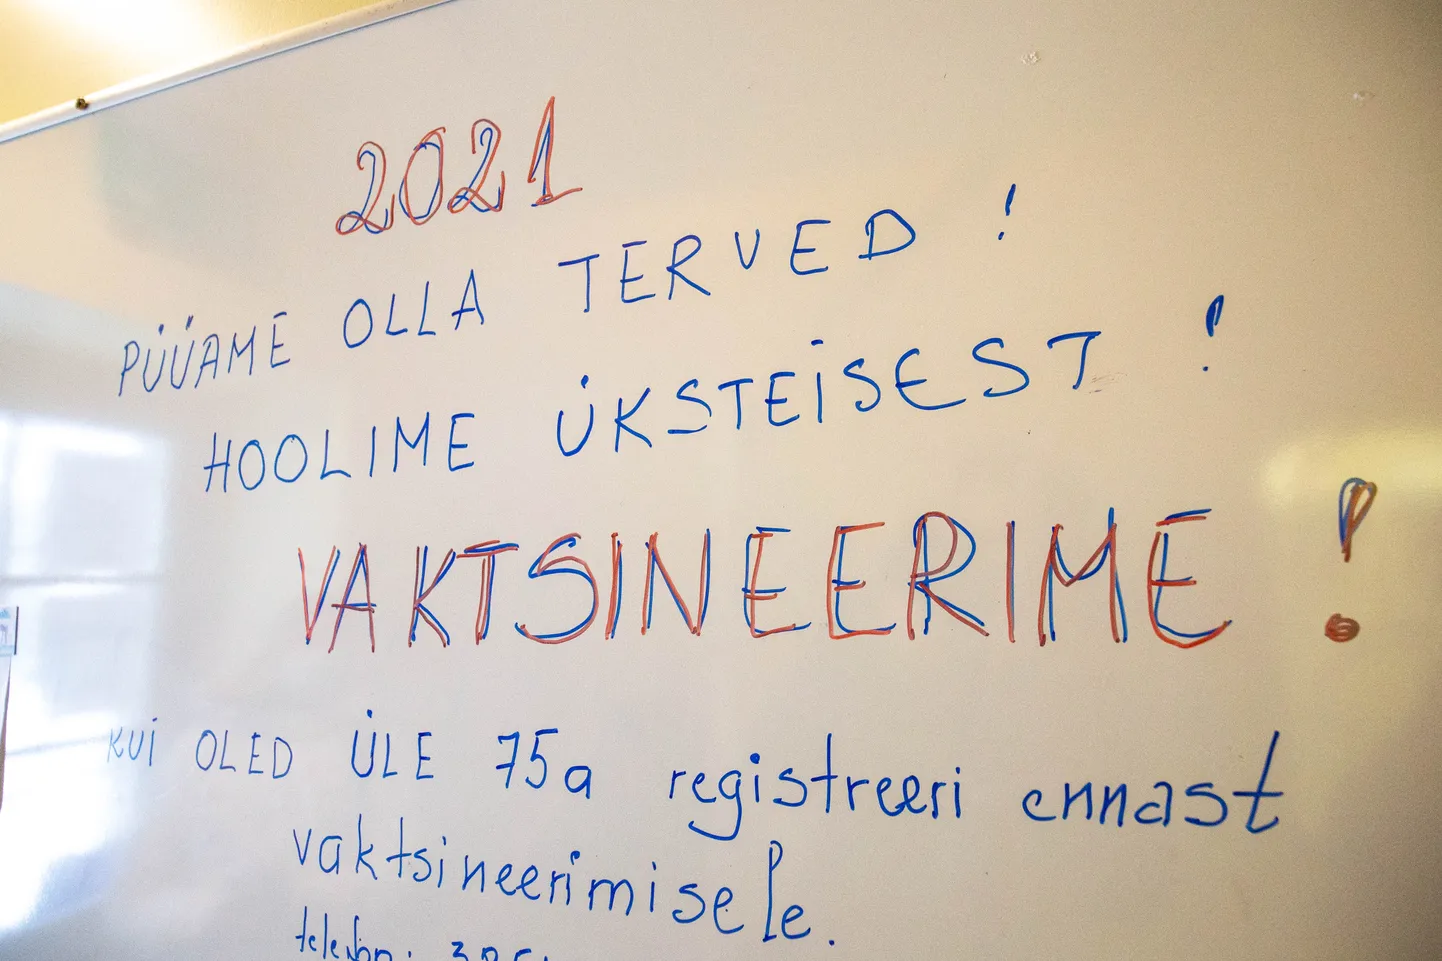 2021
PÜÜAME OLLA TERVED !
HOOLIME ÜKSTEISEST !
VAKTSINEERIME !
KUI OLED ÜLE 75a registreeri ennast
vaktsineerimisele.